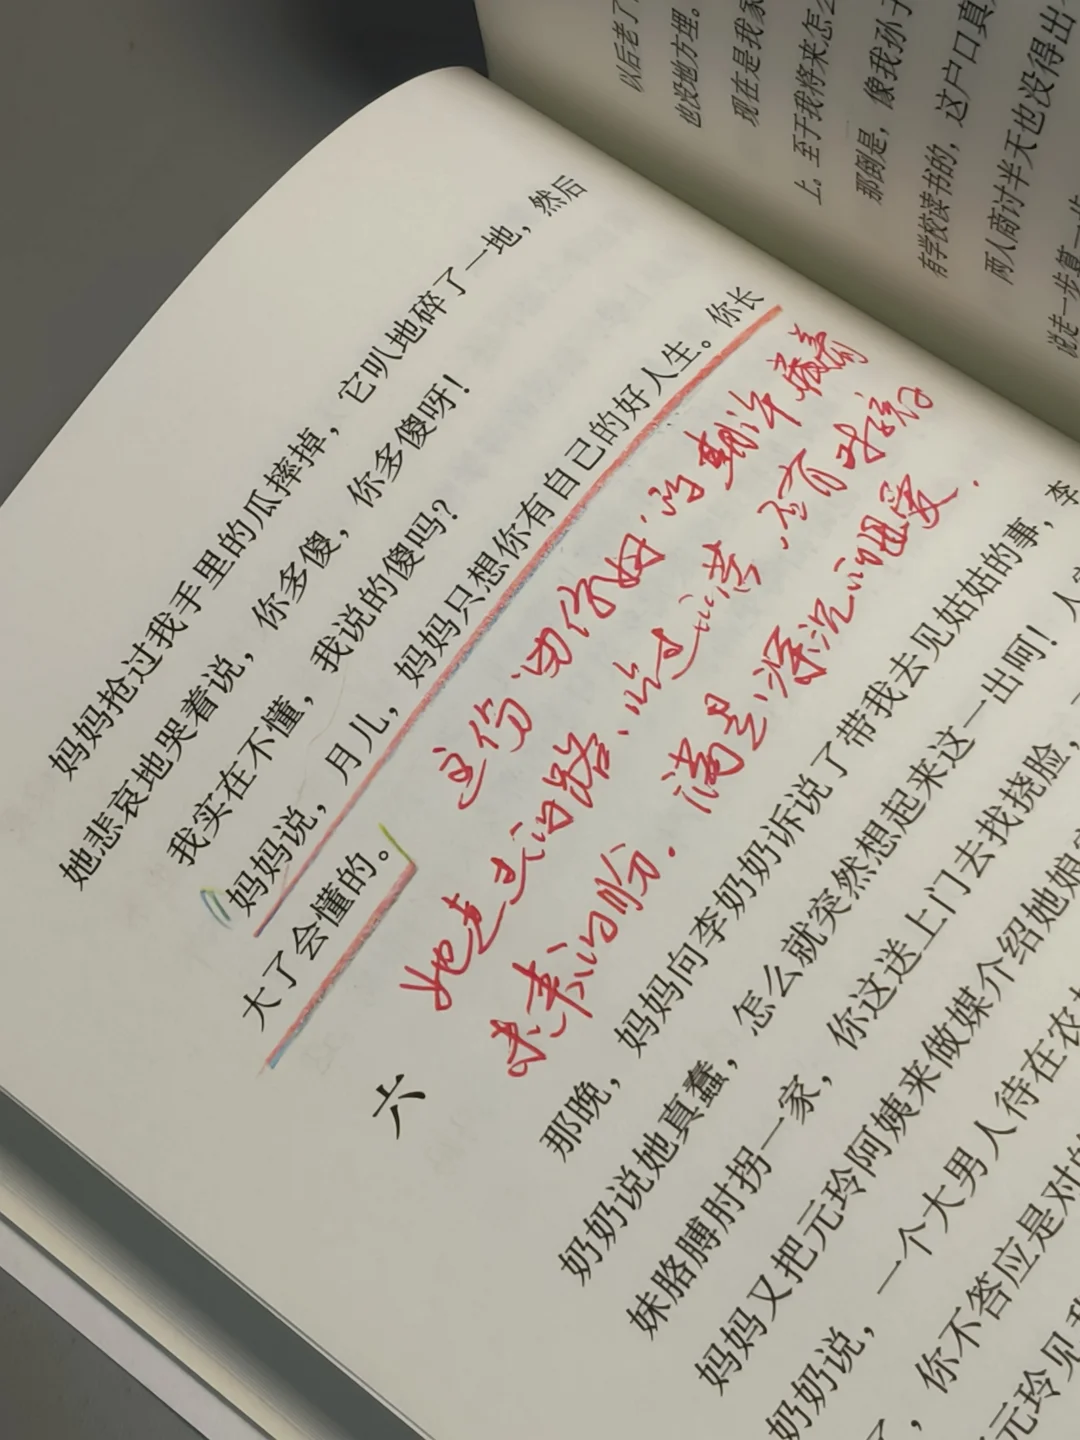 妈妈抢过我手里的瓜摔掉，它叭地碎了一地，然后
她悲哀地哭着说，你多傻，你多傻呀！
我实在不懂，我说的傻吗？
妈妈说，月儿，妈妈只想你有自己的好人生。你长
大了会懂的。
这份 你好 的期许 藏着
她走过的路、吃过的苦 还有对孩子
未来的盼. 满是深沉的母爱.
六
那晚，妈妈向李奶奶诉说了带我去见姑姑的事，李
奶奶说她真蠢，怎么就突然想起来这一出呵！人
妹胳膊肘拐一家，你这送上门去找挠脸，
妈妈又把元玲阿姨来做媒介绍她娘
奶奶说，一个大男人待在农
了，你不答应是对的
元玲见我
以后老了
也没地方埋。
现在是我家
上。至于我将来怎么
那倒是，像我孙子
有学校读书的，这户口真
两人商讨半天也没得出
说走一步算一步